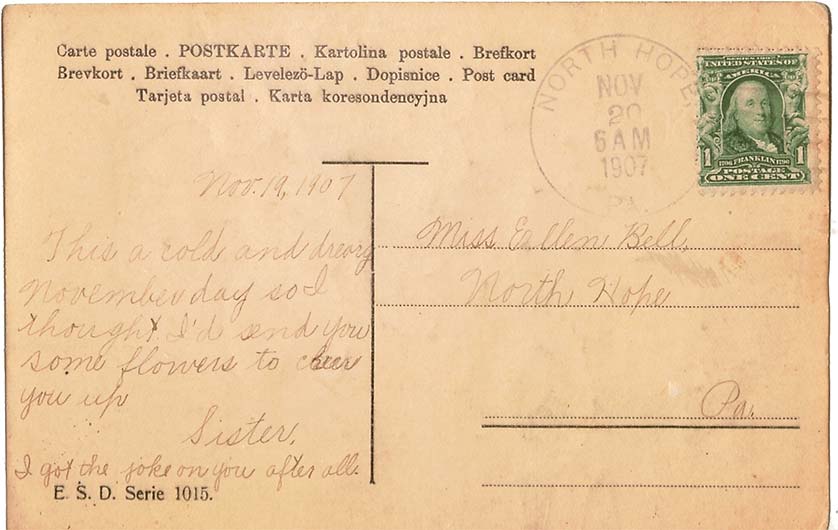 Carte postale . POSTKARTE . Kartolina postale . Brefkort
Brevkort . Briefkaart . Levelezö-Lap . Dopisnice . Post card
Tarjeta postal . Karta koresondencyjna
NORTH HOPE
NOV
20
6 AM
1907
PA
SERIES 1902
UNITED STATES OF
AMERICA
1 1706 FRANKLIN 1790 1
POSTAGE
ONE CENT
Nov. 19, 1907
This a cold and dreary
November day so I
thought I'd send you
some flowers to cheer
you up
Sister.
I got the joke on you after all.
Miss Ellen Bell
North Hope
Pa.
E. S. D. Serie 1015.